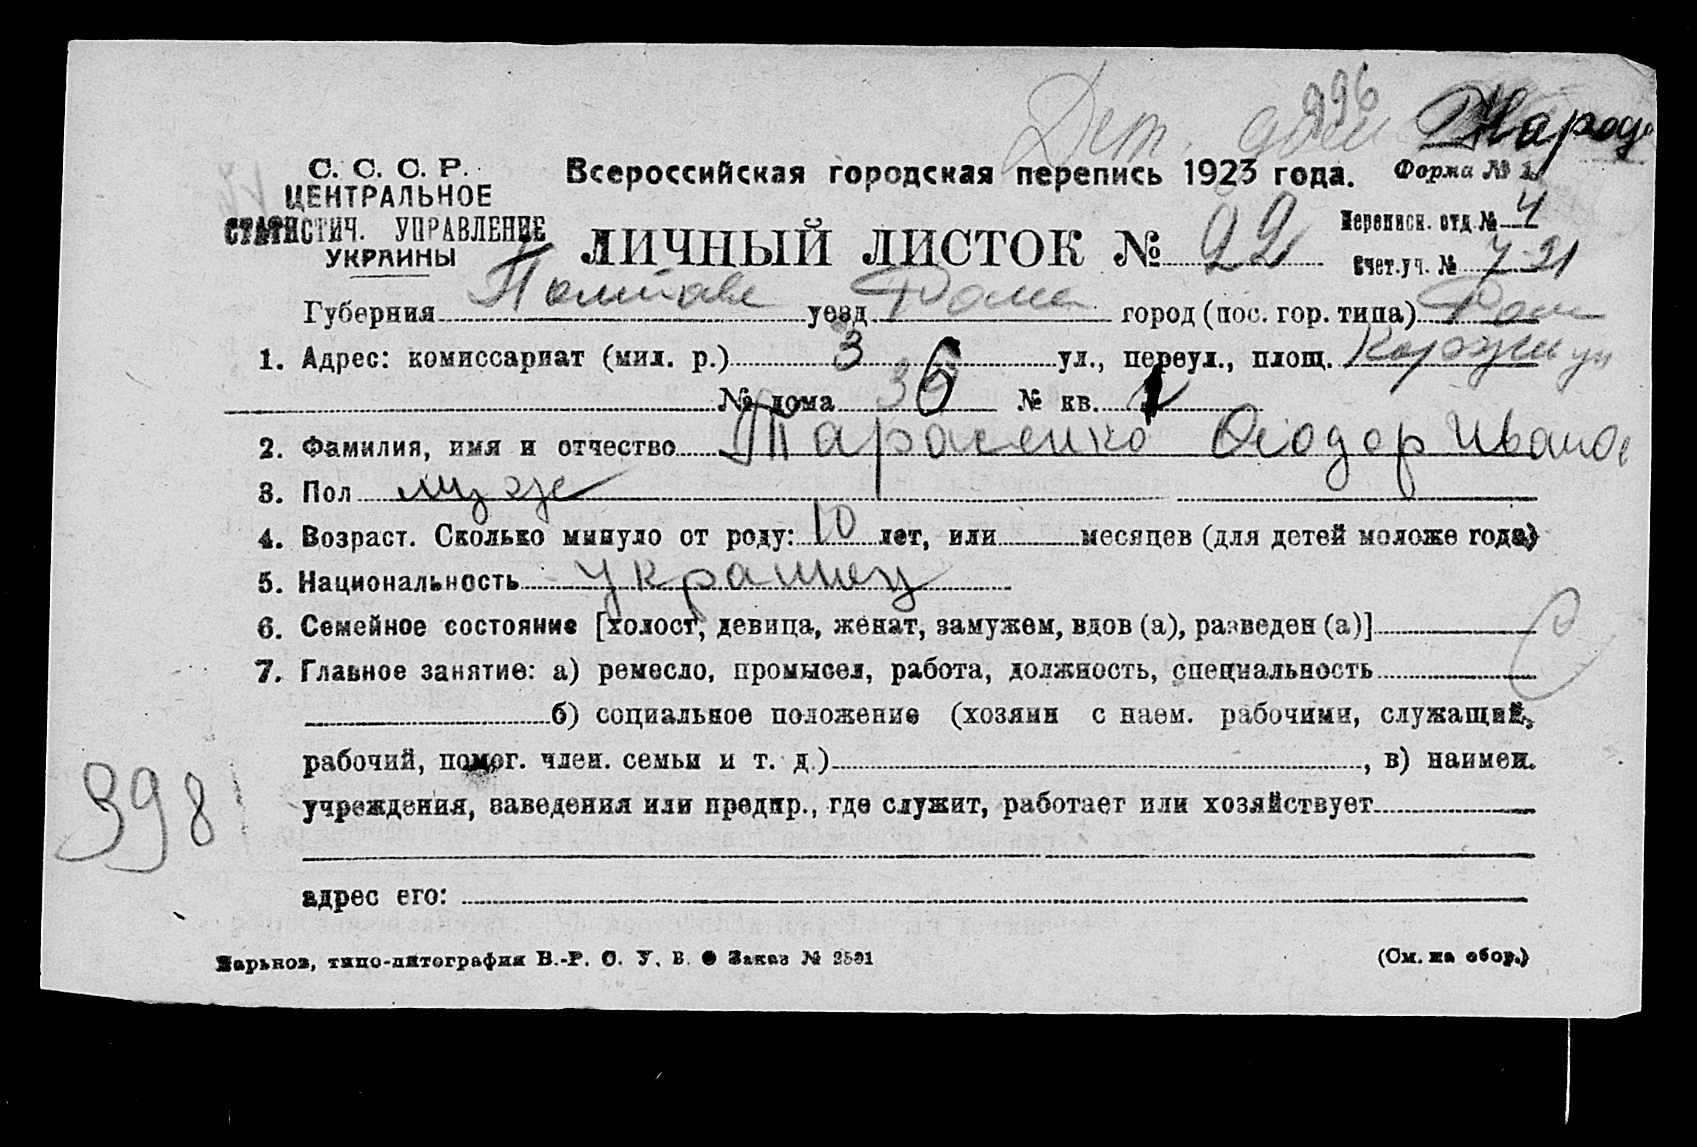 996
Дет. дом Народ
С. С. С. Р.
ЦЕНТРАЛЬНОЕ
СТАТИСТИЧ. УПРАВЛЕНИЕ
УКРАИНЫ
Всероссийская городская перепись 1923 года.
Форма № 1.
ЛИЧНЫЙ ЛИСТОК № 22
Переписн. отд. № 4
Счет. уч. № 21
Губерния Полтав уезд Ромен город (пос. гор. типа) Ром
1. Адрес: комиссариат (мил. р.) 3 ул., переул., площ.
№ дома 36 № кв. 1
2. Фамилия, имя и отчество Тарасенко Феодор Иванов
3. Пол муж
4. Возраст. Сколько минуло от роду: 10 лет, или месяцев (для детей моложе года)
5. Национальность украинец
6. Семейное состояние [холост, девица, женат, замужем, вдов (а), разведен (а)]
7. Главное занятие: а) ремесло, промысел, работа, должность, специальность
б) социальное положение (хозяин с наем. рабочими, служащий,
рабочий, помог. член. семьи и т. д.), в) наимен.
учреждения, заведения или предпр., где служит, работает или хозяйствует
398
адрес его:
Харьков, типо-литография В.-Р. С. У. В. Заказ № 2591
(См. на обор.)